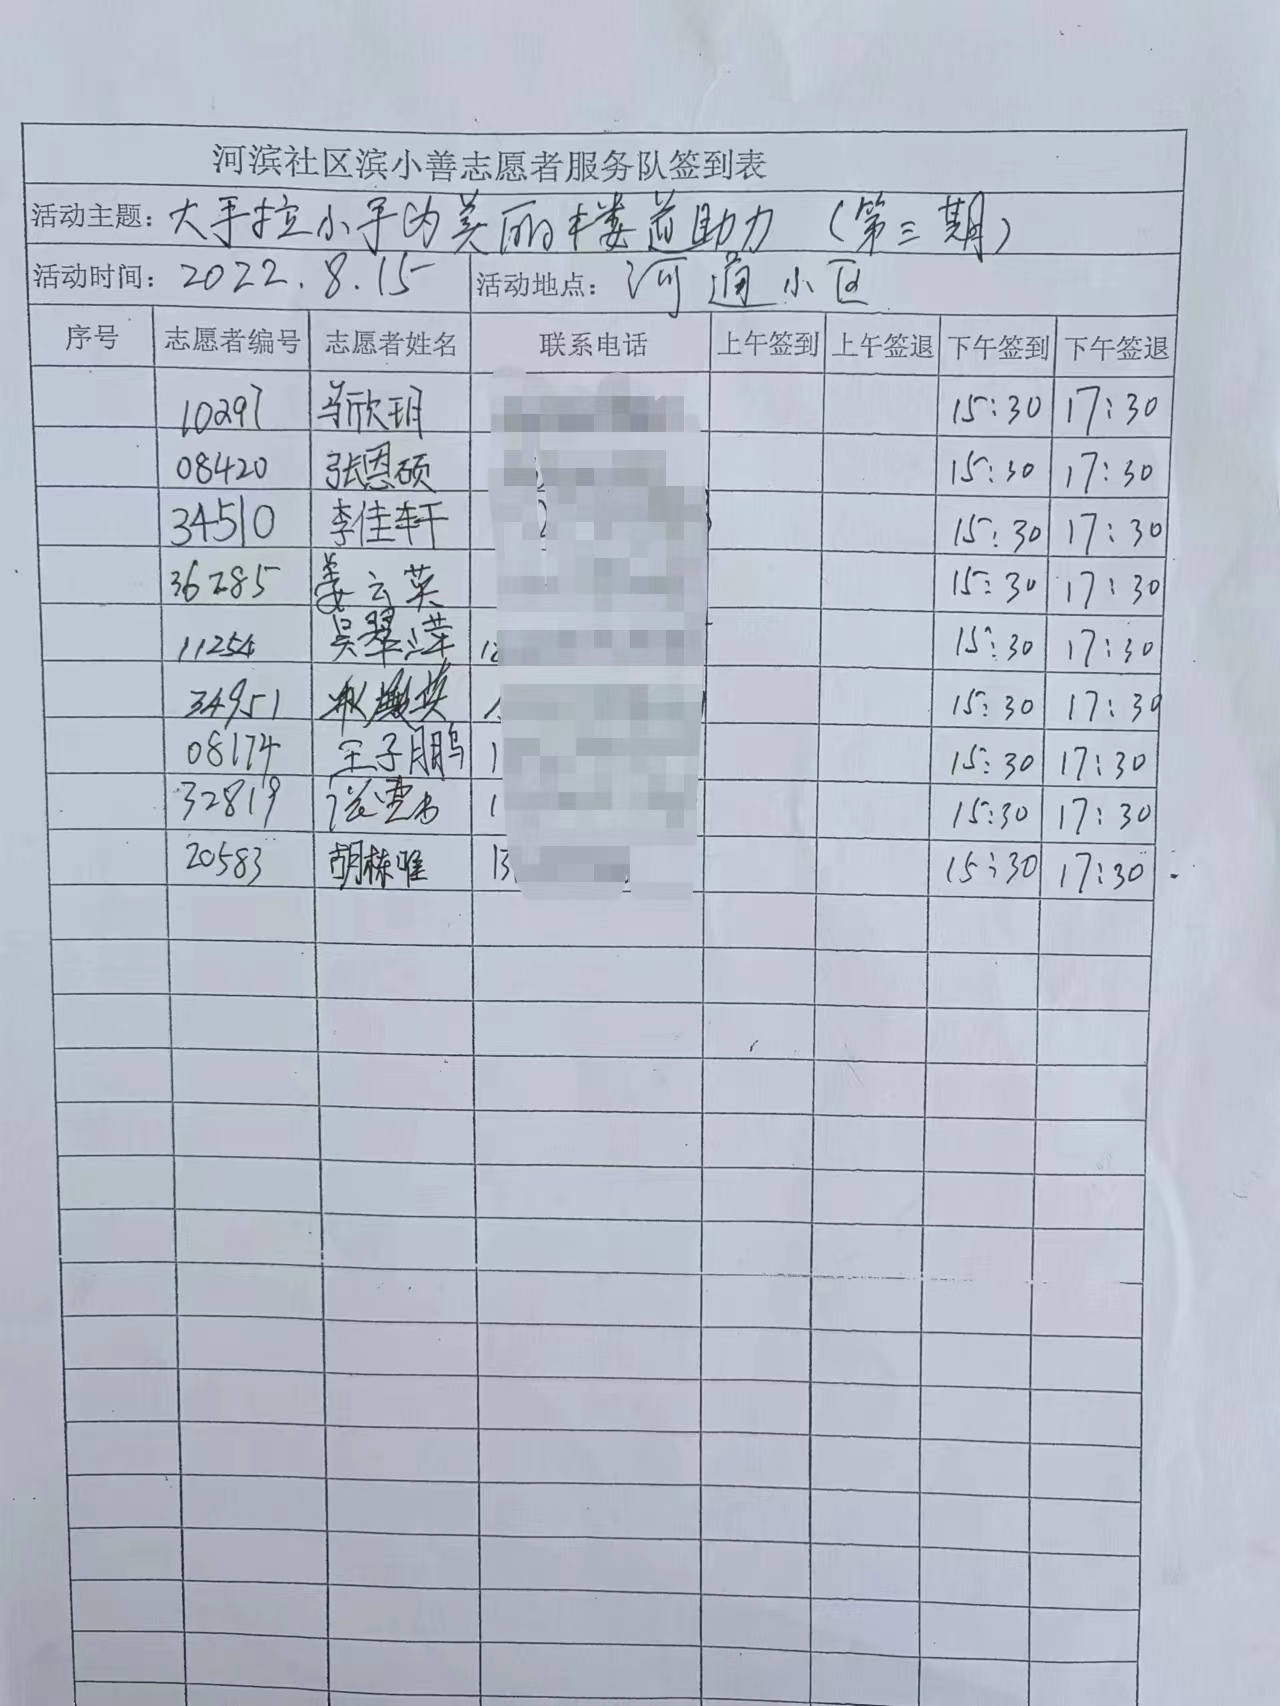 河滨社区滨小善志愿者服务队签到表
活动主题：大手拉小手为美丽楼道助力（第三期）
活动时间：2022.8.15 活动地点：河道小区
序号 志愿者编号 志愿者姓名 联系电话 上午签到 上午签退 下午签到 下午签退
10297 马欣玥 15:30 17:30
08420 张恩硕 15:30 17:30
34510 李佳轩 15:30 17:30
36285 姜云英 15:30 17:30
11254 吴翠萍 15:30 17:30
34951 15:30 17:30
08174 王子鹏 15:30 17:30
32819 15:30 17:30
20583 胡栋唯 13 15:30 17:30